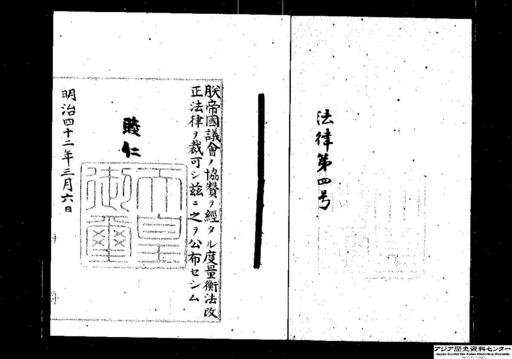 法律第四号
朕帝國議會ノ協賛ヲ經タル度量衡法改
正法律ヲ裁可シ茲ニ之ヲ公布セシム
睦仁
天皇
御璽
明治四十二年三月六日
アジア歴史資料センター
Japan Center for Asian Historical Records